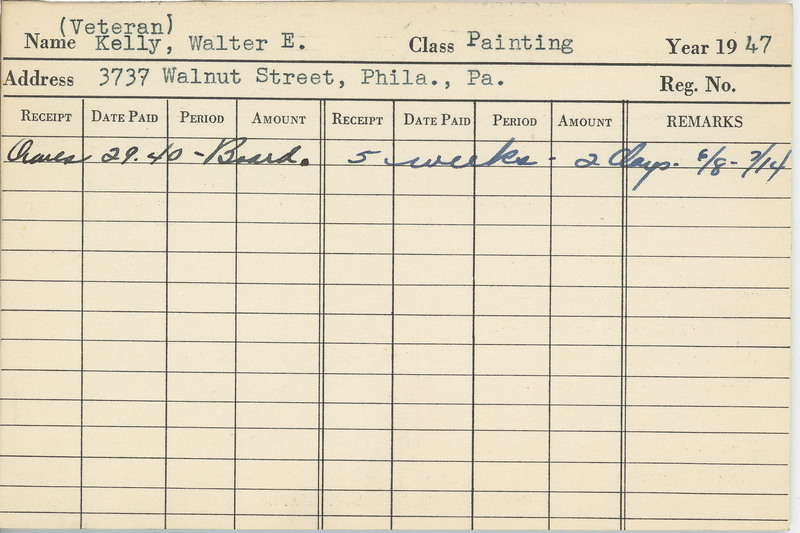 (Veteran)
Name Kelly, Walter E. Class Painting Year 1947
Address 3737 Walnut Street, Phila., Pa. Reg. No.
RECEIPT DATE PAID PERIOD AMOUNT RECEIPT DATE PAID PERIOD AMOUNT REMARKS
Owes 29.40 - Board. 5 weeks - 2 Days. 6/8 - 7/14